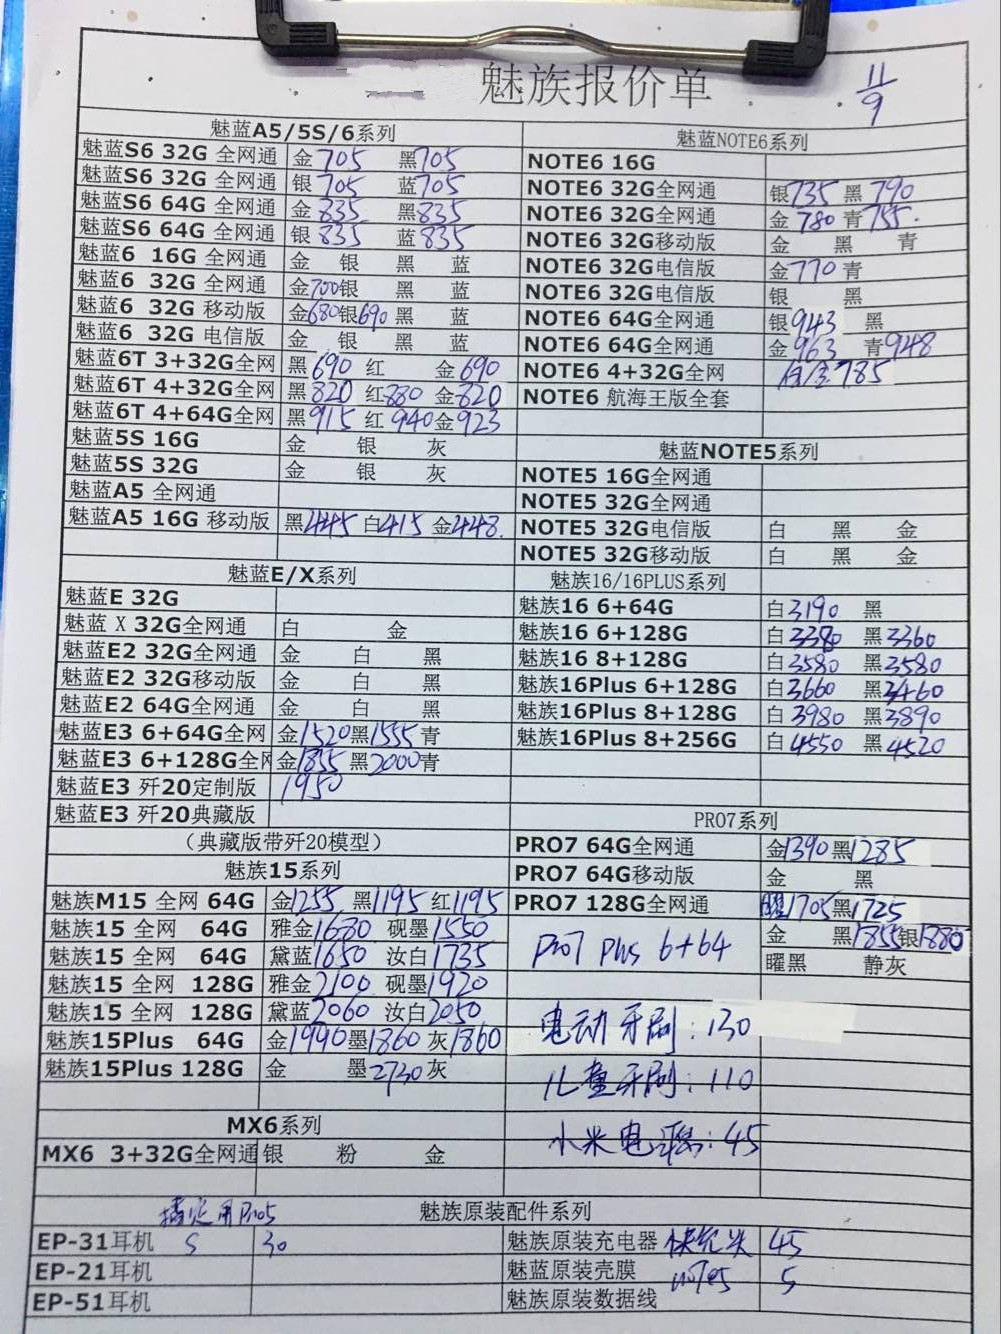 魅族报价单
11/9
魅蓝A5/5S/6系列
魅蓝S6 32G 全网通 金705 黑705
魅蓝S6 32G 全网通 银705 蓝705
魅蓝S6 64G 全网通 金835 黑835
魅蓝S6 64G 全网通 银835 蓝835
魅蓝6 16G 全网通 金 银 黑 蓝
魅蓝6 32G 全网通 金700银 黑 蓝
魅蓝6 32G 移动版 金680银690黑 蓝
魅蓝6 32G 电信版 金 银 黑 蓝
魅蓝6T 3+32G全网 黑690 红 金690
魅蓝6T 4+32G全网 黑820 红880 金820
魅蓝6T 4+64G全网 黑915 红940金923
魅蓝5S 16G 金 银 灰
魅蓝5S 32G 金 银 灰
魅蓝A5 全网通
魅蓝A5 16G 移动版 黑445 白415 金448.
魅蓝E/X系列
魅蓝E 32G
魅蓝 X 32G全网通 白 金
魅蓝E2 32G全网通 金 白 黑
魅蓝E2 32G移动版 金 白 黑
魅蓝E2 64G全网通 金 白 黑
魅蓝E3 6+64G全网 金1520黑1555青
魅蓝E3 6+128G全网 金1855 黑2000青
魅蓝E3 歼20定制版 1950
魅蓝E3 歼20典藏版
（典藏版带歼20模型）
魅族15系列
魅族M15 全网 64G 金1255 黑1195 红1195
魅族15 全网 64G 雅金1680 砚墨1550
魅族15 全网 64G 黛蓝1650 汝白1735
魅族15 全网 128G 雅金2100 砚墨1920
魅族15 全网 128G 黛蓝2060 汝白2050
魅族15Plus 64G 金1990墨1860 灰1860
魅族15Plus 128G 金 墨2730灰
MX6系列
MX6 3+32G全网通 银 粉 金
魅蓝NOTE6系列
NOTE6 16G
NOTE6 32G全网通 银735 黑790
NOTE6 32G全网通 金780青755.
NOTE6 32G移动版 金 黑 青
NOTE6 32G电信版 金770青
NOTE6 32G电信版 银 黑
NOTE6 64G全网通 银943 黑
NOTE6 64G全网通 金963 青948
NOTE6 4+32G全网 785
NOTE6 航海王版全套
魅蓝NOTE5系列
NOTE5 16G全网通
NOTE5 32G全网通
NOTE5 32G电信版 白 黑 金
NOTE5 32G移动版 白 黑 金
魅族16/16PLUS系列
魅族16 6+64G 白3190 黑
魅族16 6+128G 白3380 黑3360
魅族16 8+128G 白3580 黑3580
魅族16Plus 6+128G 白3660 黑3460
魅族16Plus 8+128G 白3980 黑3890
魅族16Plus 8+256G 白4550 黑4520
PRO7系列
PRO7 64G全网通 金1390黑1285
PRO7 64G移动版 金 黑
PRO7 128G全网通 1705黑1725
Pro7 plus 6+64 金 黑1855银1880
曜黑 静灰
电动牙刷：130
儿童牙刷：110
小米电 ：45
用Pro5
魅族原装配件系列
EP-31耳机 S 30
EP-21耳机
EP-51耳机
魅族原装充电器 快充头 45
魅蓝原装壳膜 note5 5
魅族原装数据线